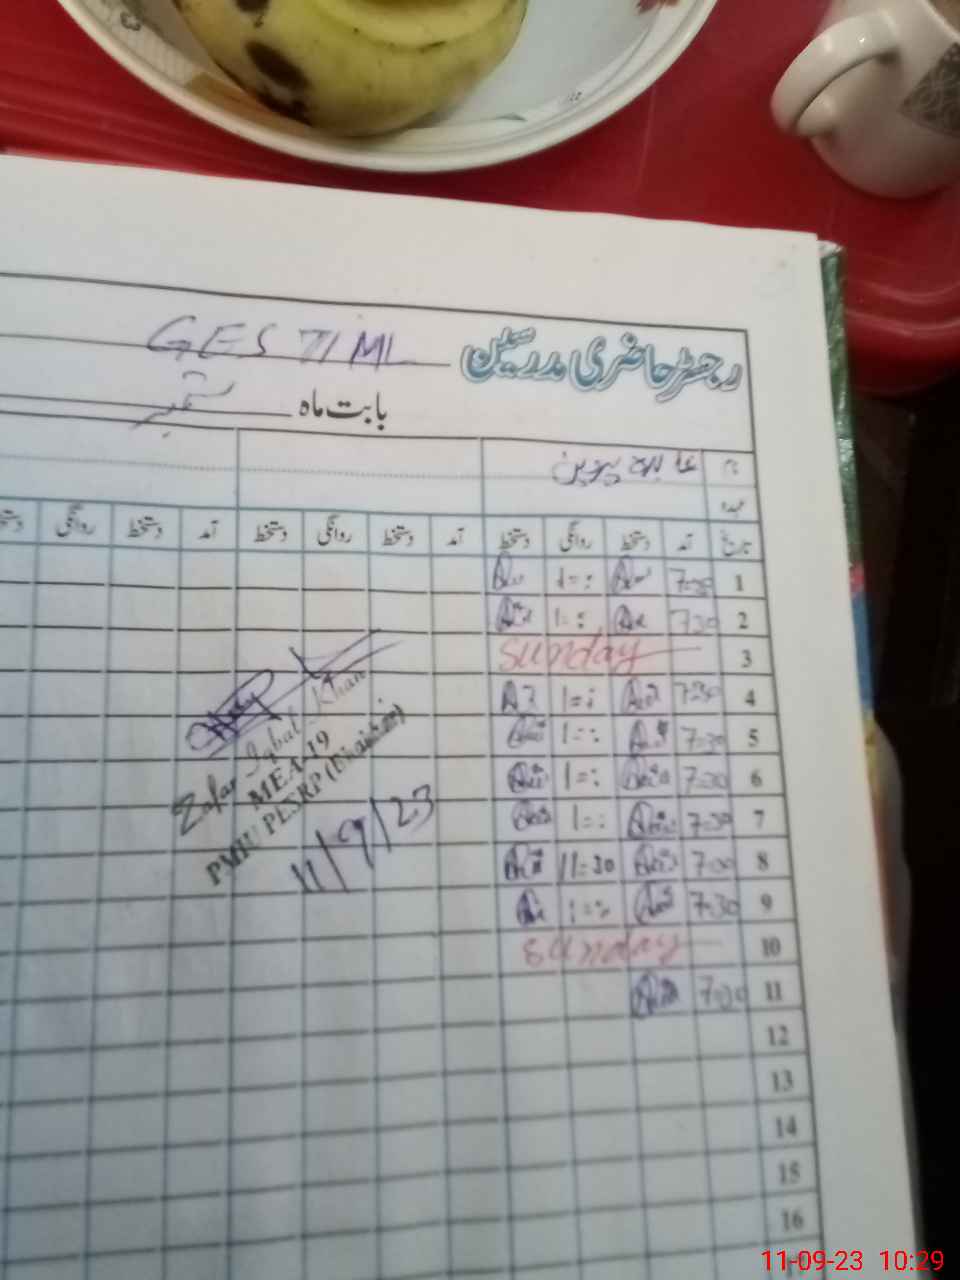 رجسٹر حاضری مدرسین GES TIML
بابت ماہ ستمبر
نام عابدہ پروین
عہدہ
تاریخ آمد دستخط روانگی دستخط آمد دستخط روانگی دستخط آمد دستخط روانگی
1 7:30 1=:
2 7:30 1=:
3 Sunday
4 7:30 1=:
5 7:30 1=:
6 7:30 1=:
7 7:30 1=:
8 7:00 11=30
9 7:30 1=:
10 Sunday
11 7:30
12
13
14
15
16
17
Zafar Iqbal Khan
MEA-19
PMIU PESRP
11/9/23
11-09-23 10:29